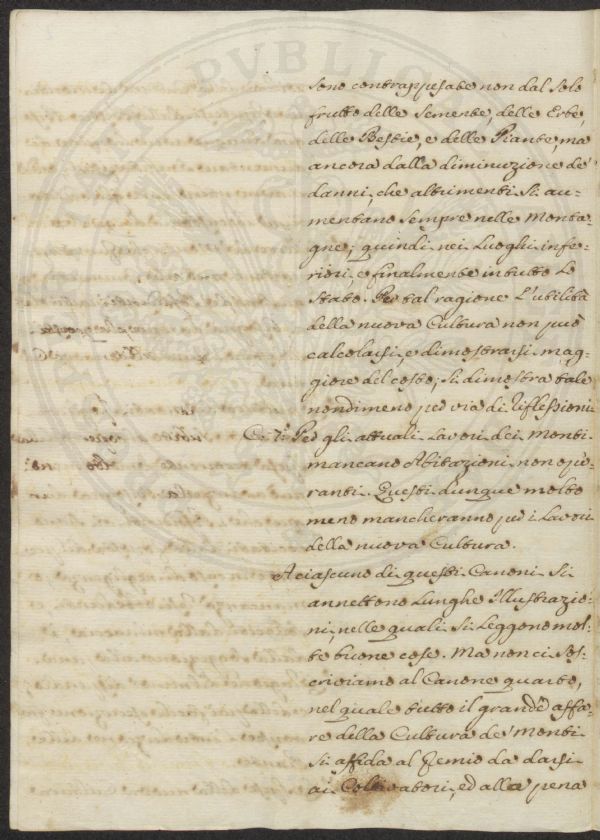 sono contrappesate non dal solo
frutto delle Semente, delle Erbe,
delle Bestie, e delle Piante, ma
ancora dalla diminuzione de'
danni, che altrimenti si au-
mentano sempre nelle Monta-
gne; quindi nei Luoghi infe-
riori, e finalmente in tutto lo
Stato. Per tal ragione l'utilità
della nuova Cultura non può
calcolarsi, e dimostrarsi mag-
giore del costo; si dimostra tale
nondimeno per via di riflessioni
C. 7.° Per gli attuali Lavori dei Monti
mancano Abitazioni non ope-
ranti. Questi dunque molto
meno mancheranno per i Lavori
della nuova Cultura.
A ciascuno di questi Canoni si
annettono Lunghe Illustrazio-
ni, nelle quali si Leggono mol-
te buone cose. Ma non ci sos-
criviamo al Canone quarto,
nel quale tutto il grand'affa-
re della Cultura de' Monti
si affida al Premio da darsi
ai Coltivatori, ed alla pena